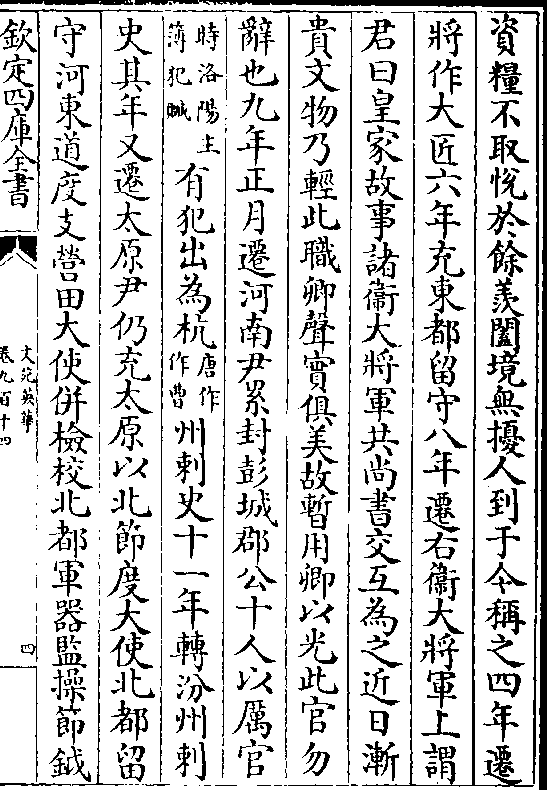 資糧不取悅於餘羨闔境無擾人到于今稱之四年遷
將作大匠六年充東都留守八年遷右衞大將軍上謂
君曰皇家故事諸衞大將軍共尚書交互為之近日漸
貴文物乃輕此職卿聲實俱美故暫用卿以光此官勿
辭也九年正月遷河南尹累封彭城郡公十人以厲官
時洛陽主簿犯贓有犯出為杭唐作作曹州刺史十一年轉汾州刺
史其年又遷太原尹仍充太原以北節度大使北都留
守河東道度支營田大使併檢校北都軍器監操節鉞
欽定四庫全書
文苑英華
卷九百十四
四